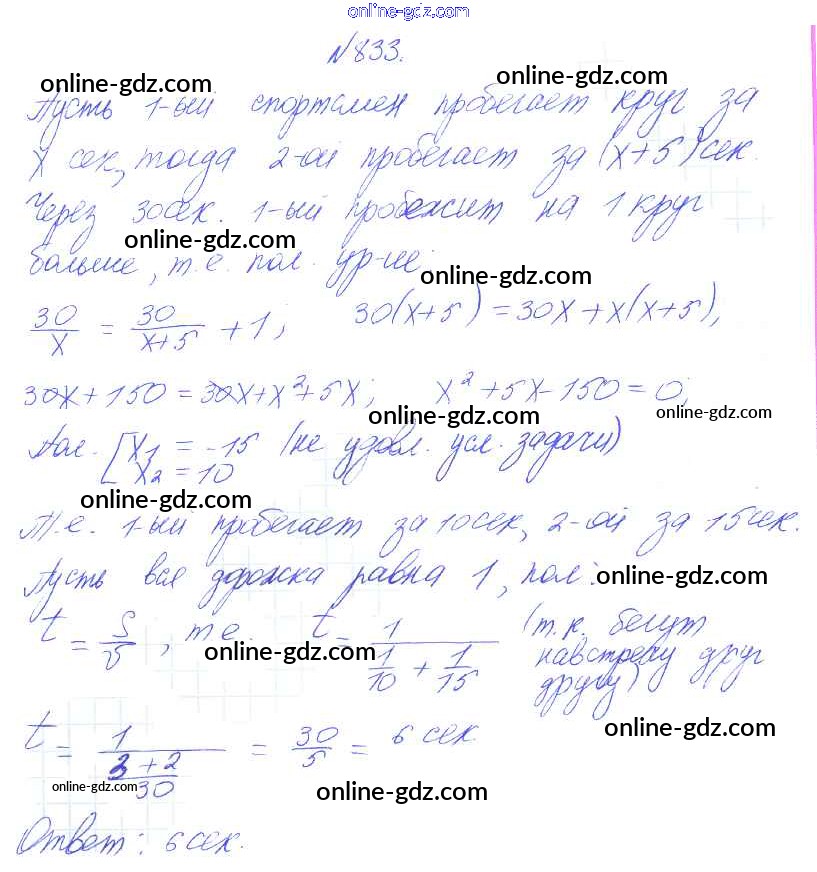 online-gdz.com
№833.
online-gdz.com online-gdz.com
Пусть 1-ый спортсмен пробегает круг за
x сек, тогда 2-ой пробегает за (x+5) сек.
Через 30 сек. 1-ый пробежит на 1 круг
online-gdz.com
больше, т.е. пол. ур-ие:
online-gdz.com
30/x = 30/(x+5) + 1; 30(x+5) = 30x + x(x+5),
30x + 150 = 30x + x² + 5x; x² + 5x - 150 = 0;
online-gdz.com online-gdz.com
Пол. [x₁ = -15 (не удовл. усл. задачи)
x₂ = 10
online-gdz.com
Т.е. 1-ый пробегает за 10 сек, 2-ой за 15 сек.
Пусть вся дорожка равна 1, пол:
online-gdz.com
t = S/v, т.е. t = 1/(1/10 + 1/15) (т.к. бегут
навстречу друг
другу)
online-gdz.com
online-gdz.com
t = 1/((3+2)/30) = 30/5 = 6 сек.
online-gdz.com online-gdz.com
Ответ: 6 сек.